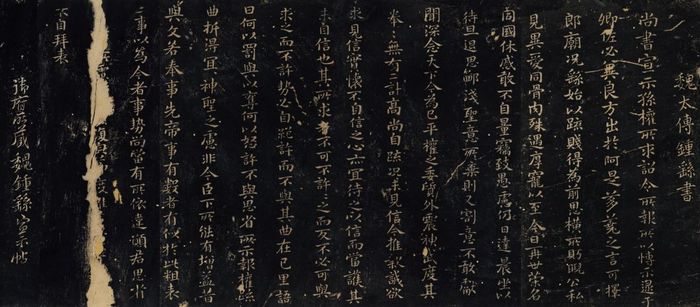 魏太傅鍾繇書
尚書宣示孫權所求詔令所報所以博示逮
于卿佐必冀良方出於阿是芻蕘之言可擇
郎廟況繇始以疏賤得為前恩橫所盼睨公私
見異愛同骨肉殊遇厚寵以至今日再世榮名
同國休慼敢不自量竊致愚慮仍日達晨坐以
待旦退思鄙淺聖意所棄則又割意不敢獻
聞深念天下今為已平權之委質外震神武度其
拳拳無有二計高尚自疏況未見信今推款誠欲
求見信實懷不自信之心亦宜待之以信而當護其
未自信也其所求者不可不許許之而反不必可與
求之而不許勢必自絕許而不與其曲在己里語
曰何以罰與以奪何以怒許不與思省所示報權疏
曲折得宜宜神聖之慮非今臣下所能有增益昔
與文若奉事先帝事有數者有似於此粗表
二事以為今者事勢尚當有所依違願君思省
不自拜表
藏魏鍾繇宣示帖